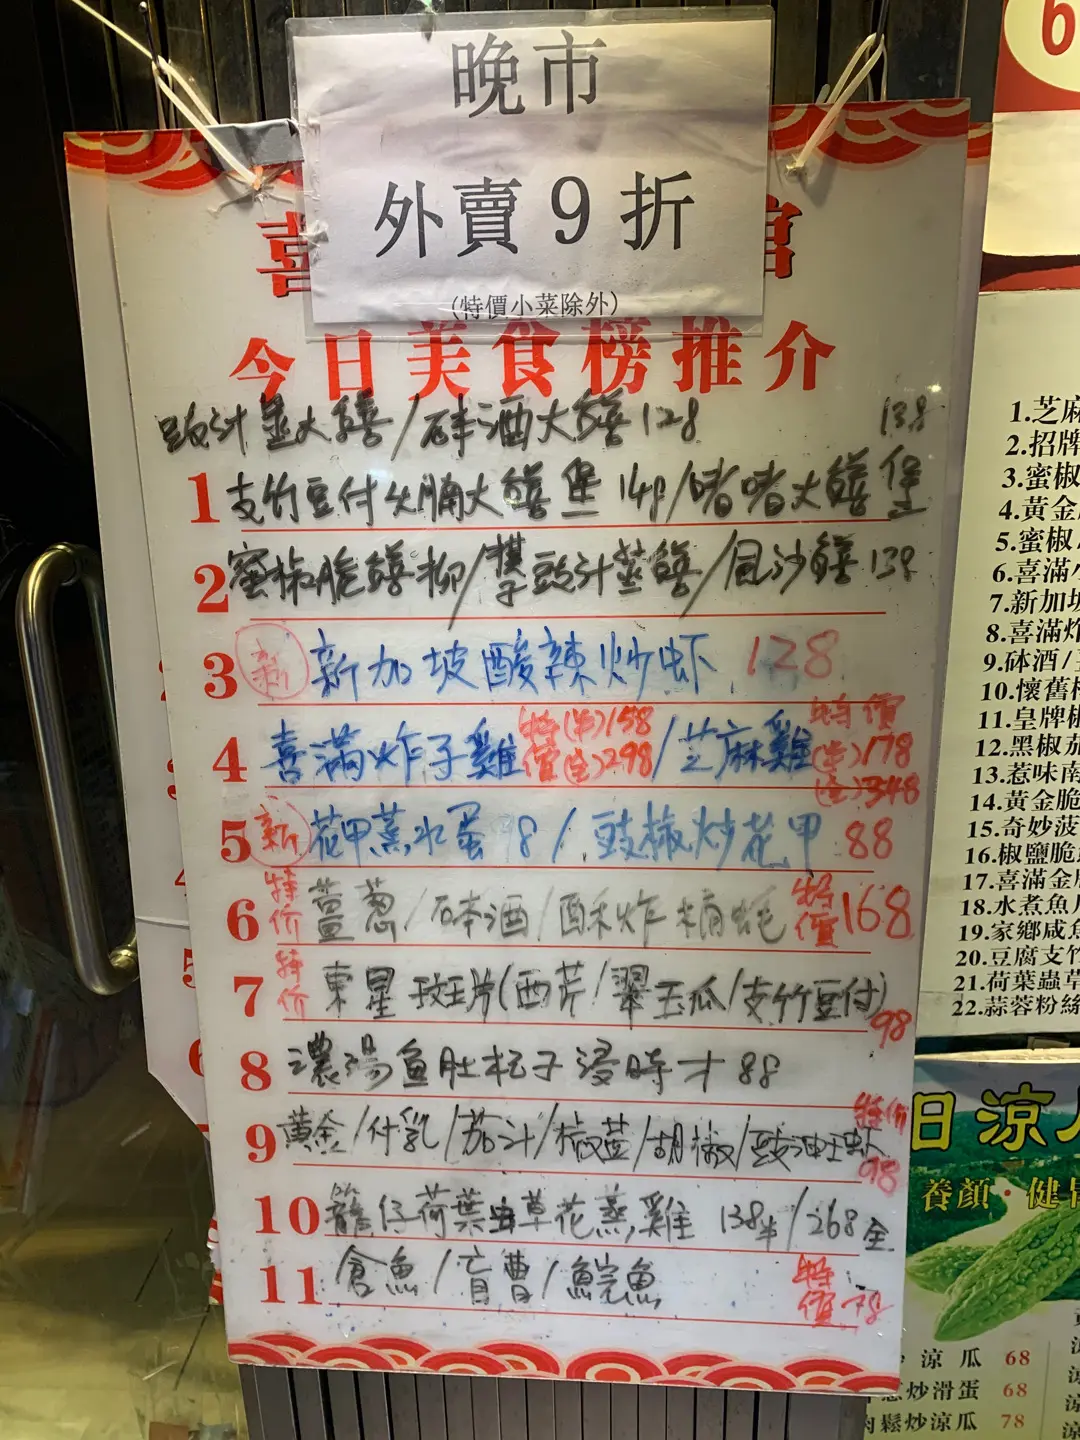 晚市
外賣9折
(特價小菜除外)
喜
館
今日美食榜推介
豉汁蒸大鱔/砵酒大鱔128 138
1 支竹豆付火腩大鱔堡 149/啫啫大鱔堡
2 蜜椒脆鱔柳/欖豉汁蒸鱔/風沙鱔 139
3 新 新加坡酸辣炒虾 128
4 喜滿炸子雞 特價 (半)158 (全)298/芝麻雞 特價 (半)178 (全)348
5 新 花甲蒸水蛋 98/豉椒炒花甲 88
6 特价 薑葱/砵酒/酥炸桶蚝 特價 168
7 特价 東星斑片(西芹/翠玉瓜/支竹豆付) 98
8 濃湯魚肚杞子浸時才 88
9 黄金/什乳/茄汁/椒藍/胡椒/豉油王虾 特价 98
10 籠仔荷葉虫草花蒸雞 138半/268全
11 倉魚/盲曹/鯇魚 特價 78
6
1.芝麻
2.招牌
3.蜜椒
4.黃金
5.蜜椒
6.喜滿
7.新加坡
8.喜滿炸
9.砵酒/
10.懷舊
11.皇牌椒
12.黑椒
13.惹味南
14.黃金脆
15.奇妙菠
16.椒鹽脆
17.喜滿金
18.水煮魚
19.家鄉咸魚
20.豆腐支竹
21.荷葉蟲草
22.蒜蓉粉絲
日涼
養顏·健
涼瓜 68
炒滑蛋 68
肉鬆炒涼瓜 78